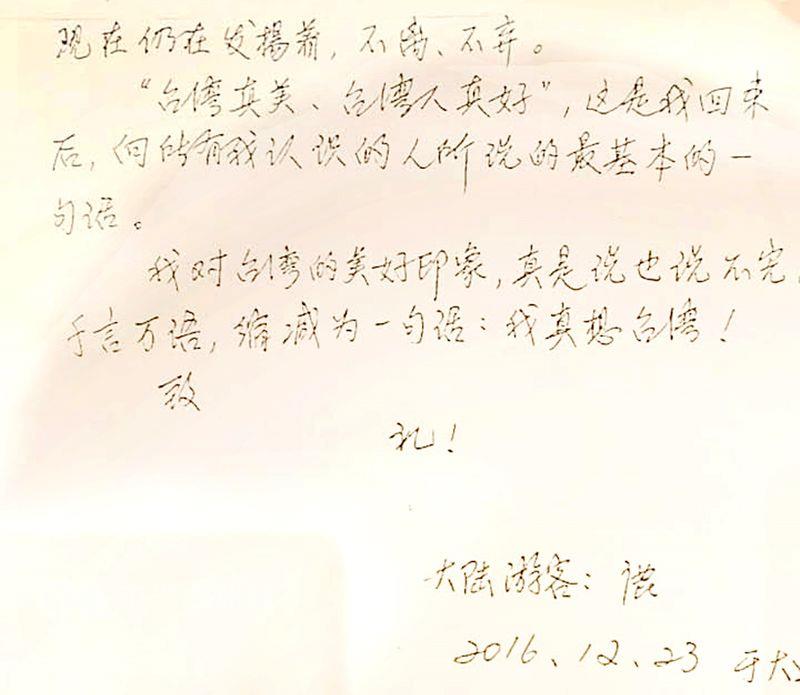 现在仍在发揚着，不离、不弃。
“台湾真美、台湾人真好”，这是我回来
后，向所有我认识的人所说的最基本的一
句话。
我对台湾的美好印象，真是说也说不完，
千言万语，缩减为一句话：我真想台湾！
致
礼！
大陆游客：
2016、12、23 于大